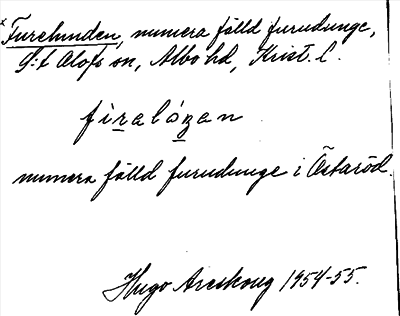 x Furelunden, numera fälld furudunge,
S:t Olofs sn, Albo hd, Krist. l.
firalózan
numera fälld furudunge i Östaröd.
Hugo Areskoug 1954-55.